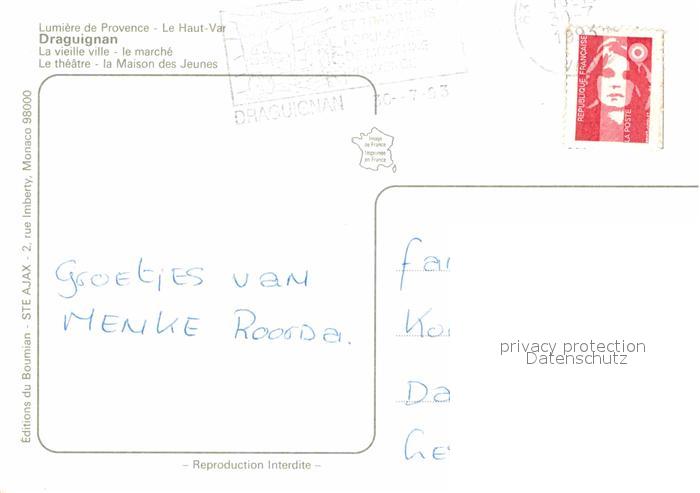 Lumière de Provence - Le Haut-Var
Draguignan
La vieille ville - le marché
Le théâtre - la Maison des Jeunes
DRAGUIGNAN 30-7-93
REPUBLIQUE FRANÇAISE
LA POSTE
Image
de France
Imprimée
en France
Editions du Boumian - STE AJAX - 2, rue Imberty, Monaco 98000
Groetjes van
MENKE Roorda.
fa
Ko
Da
privacy protection
Datenschutz
– Reproduction Interdite –